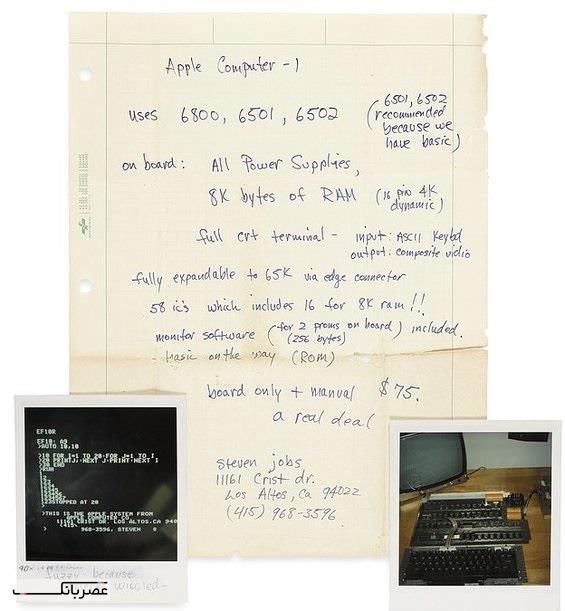 Apple Computer-1
uses 6800, 6501, 6502
(6501, 6502
recommended
because we
have basic)
on board: All Power Supplies,
8K bytes of RAM (16 pin 4K
dynamic)
full crt terminal - input: ASCII Keybd
output: composite vidio
fully expandable to 65K via edge connector
58 ic's which includes 16 for 8K ram!!
monitor software (for 2 proms on board) included.
(256 bytes)
- basic on the way (ROM)
board only + manual $75.
a real deal
steven jobs
11161 Crist dr.
Los Altos, Ca 94022
(415) 968-3596.
EF10R
EF10: A9
>AUTO 10,10
>10 FOR I=1 TO 20:FOR J=1 TO I
>20 PRINTJ:NEXT J:PRINT:NEXT I
>30 END
>RUN
STOPPED AT 20
>THIS IS THE APPLE SYSTEM FROM
APPLE COMPUTER CO.
11161 CRIST DR. LOS ALTOS,CA 940
(415)
968-3596, STEVEN
fuzzy because
عصربانک